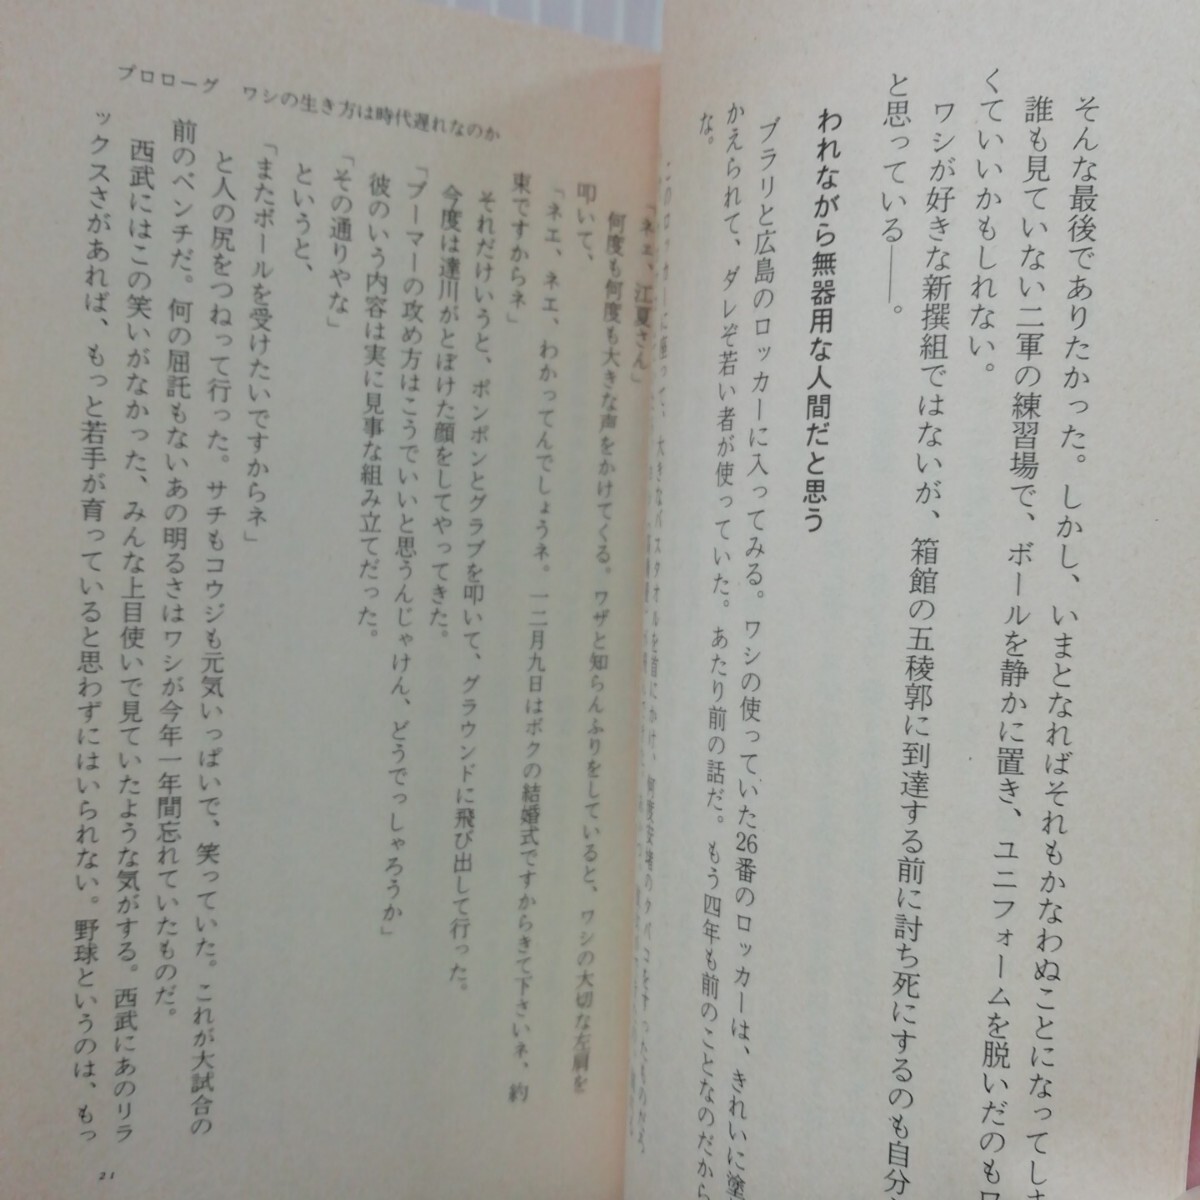 そんな最後でありたかった。しかし、いまとなればそれもかなわぬことになってしま
誰も見ていない二軍の練習場で、ボールを静かに置き、ユニフォームを脱いだのもワ
くていいかもしれない。
ワシが好きな新撰組ではないが、箱館の五稜郭に到達する前に討ち死にするのも自分
と思っている――。
われながら無器用な人間だと思う
ブラリと広島のロッカーに入ってみる。ワシの使っていた26番のロッカーは、きれいに塗
かえられて、ダレぞ若い者が使っていた。あたり前の話だ。もう四年も前のことなのだから
な。
って、大きなバスタオルを首にかけ、何度安堵のタバコをすったものだろ
「ネェ、江夏さん」
何度も何度も大きな声をかけてくる。ワザと知らんふりをしていると、ワシの大切な左肩を
叩いて、
「ネエ、ネエ、わかってんでしょうネ。一二月九日はボクの結婚式ですからきて下さいネ、約
東ですからネ」
それだけいうと、ポンポンとグラブを叩いて、グラウンドに飛び出して行った。
今度は達川がとぼけた顔をしてやってきた。
「ブーマーの攻め方はこうでいいと思うんじゃけん、どうでっしゃろうか」
彼のいう内容は実に見事な組み立てだった。
「その通りやな」
というと、
「またボールを受けたいですからネ」
と人の尻をつねって行った。サチもコウジも元気いっぱいで、笑っていた。これが大試合の
前のベンチだ。何の屈託もないあの明るさはワシが今年一年間忘れていたものだ。
西武にはこの笑いがなかった、みんな上目使いで見ていたような気がする。西武にあのリラ
ックスさがあれば、もっと若手が育っていると思わずにはいられない。野球というのは、もっ
プロローグ　ワシの生き方は時代遅れなのか
21